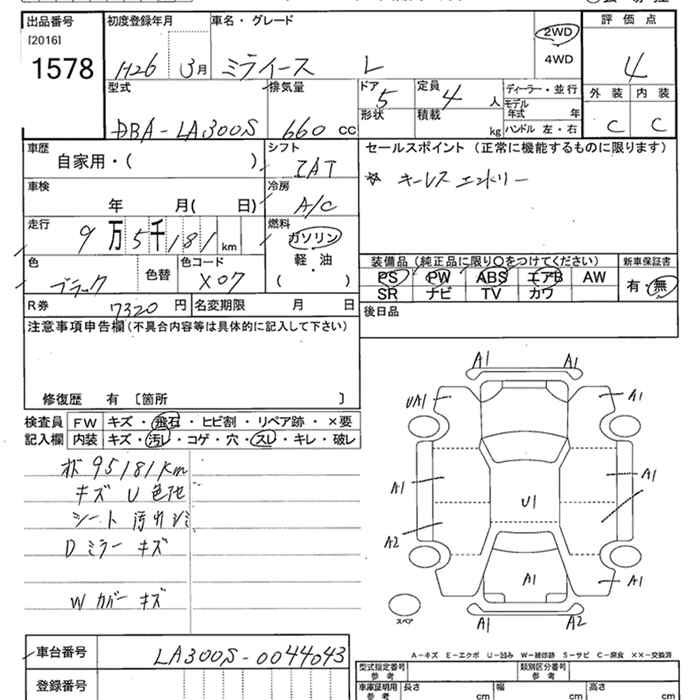 出品番号 初度登録年月 車名・グレード 2WD 評価点
[2016] 4WD
1578 H26 3月 ミライース L 4
型式 排気量 ドア 5 定員 4 人 ディーラー・並行 外装 内装
モデル年式 年
形状 積載 kg ハンドル 左・右 C C
DBA-LA300S 660 cc
車歴 シフト セールスポイント (正常に機能するものに限ります)
自家用・( ) IAT ☆ キーレスエントリー
車検 冷房
年 月( 日) A/C
走行 燃料
9万5千181km ガソリン
軽・油
( )
色 色替 色コード 装備品 (純正品に限り〇をつけてください) 新車保証書
ブラック X07 PS PW ABS エアB AW 有・無
SR ナビ TV カワ
R券 7320 円 名変期限 月 日 後日品
注意事項申告欄(不具合内容等は具体的に記入して下さい)
修復歴 有 〔箇所 〕
検査員 FW キズ・飛石・ヒビ割・リペア跡・×要
記入欄 内装 キズ・汚レ・コゲ・穴・スレ・キレ・破レ
95181km
キズ U 色地
シート 汚れ
Dミラー キズ
Wカバー キズ
A1 A1
UA1 A1
A1 A1
U1
A2
A1 A1
A1 A2
スペア
A-キズ E-エクボ U-凹み W-補修跡 S-サビ C-腐食 ××-交換済
車台番号 LA300S-0044043
登録番号
型式指定番号 参考 類別区分番号 参考
車庫証明用 参考 長さ cm 幅 cm 高さ cm